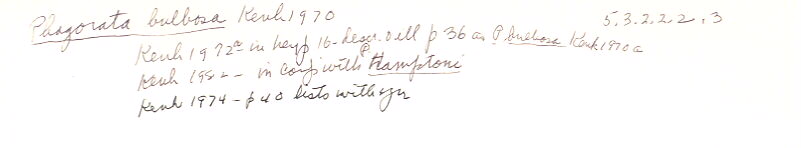 Phagocata bulbosa Kenk 1970 5.3.2.2.2.3
Kenk 1972a in key p 16 - descr. & ill p 36 as P. bulbosa Kenk 1970a
Kenk 19 - in comp with P. Hamptoni
Kenk 1974 - p 40 lists with syn